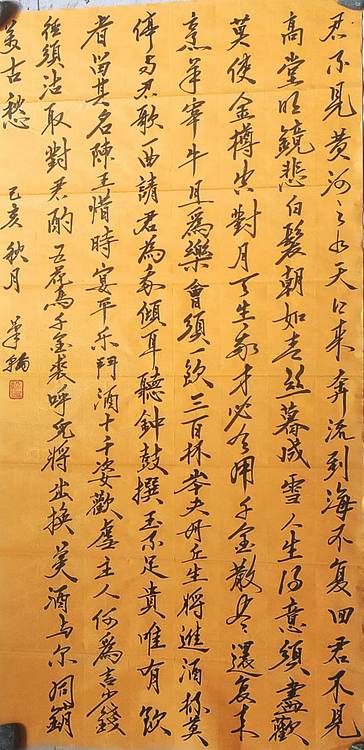 君不見黄河之水天上来奔流到海不复回君不見
高堂明鏡悲白髮朝如青丝暮成雪人生得意須盡歡
莫使金樽空對月天生我才必有用千金散尽還复来
烹羊宰牛且為樂會須一飲三百杯岑夫丹丘生將進酒杯莫
停与君歌一曲請君為我傾耳聽鐘鼓撰玉不足貴唯有飲
者留其名陳王惜時宴平乐鬥酒十千姿歡虐主人何為言少錢
徑須沽取對君酌五花馬千金裘呼兒將出換美酒与尔同銷
萬古愁 己亥秋月